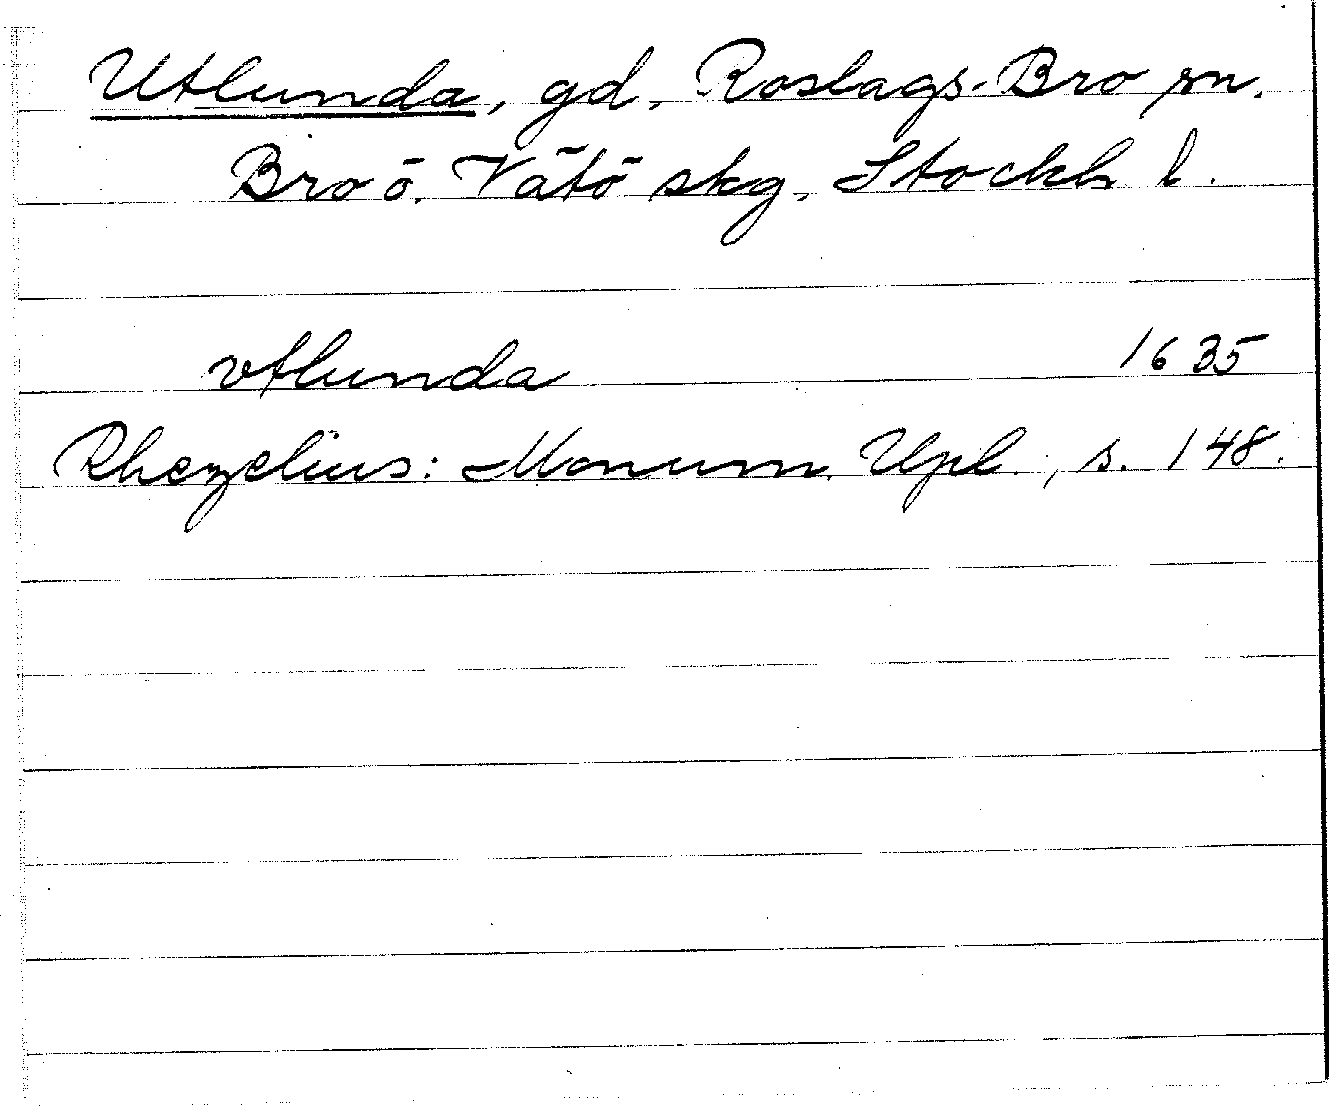 Utlunda, gd, Roslags-Bro sn.
Bro ö. Vätö skg, Stockh l.
vtlunda 1635
Rhezelius: Monum. Upl., s. 148.